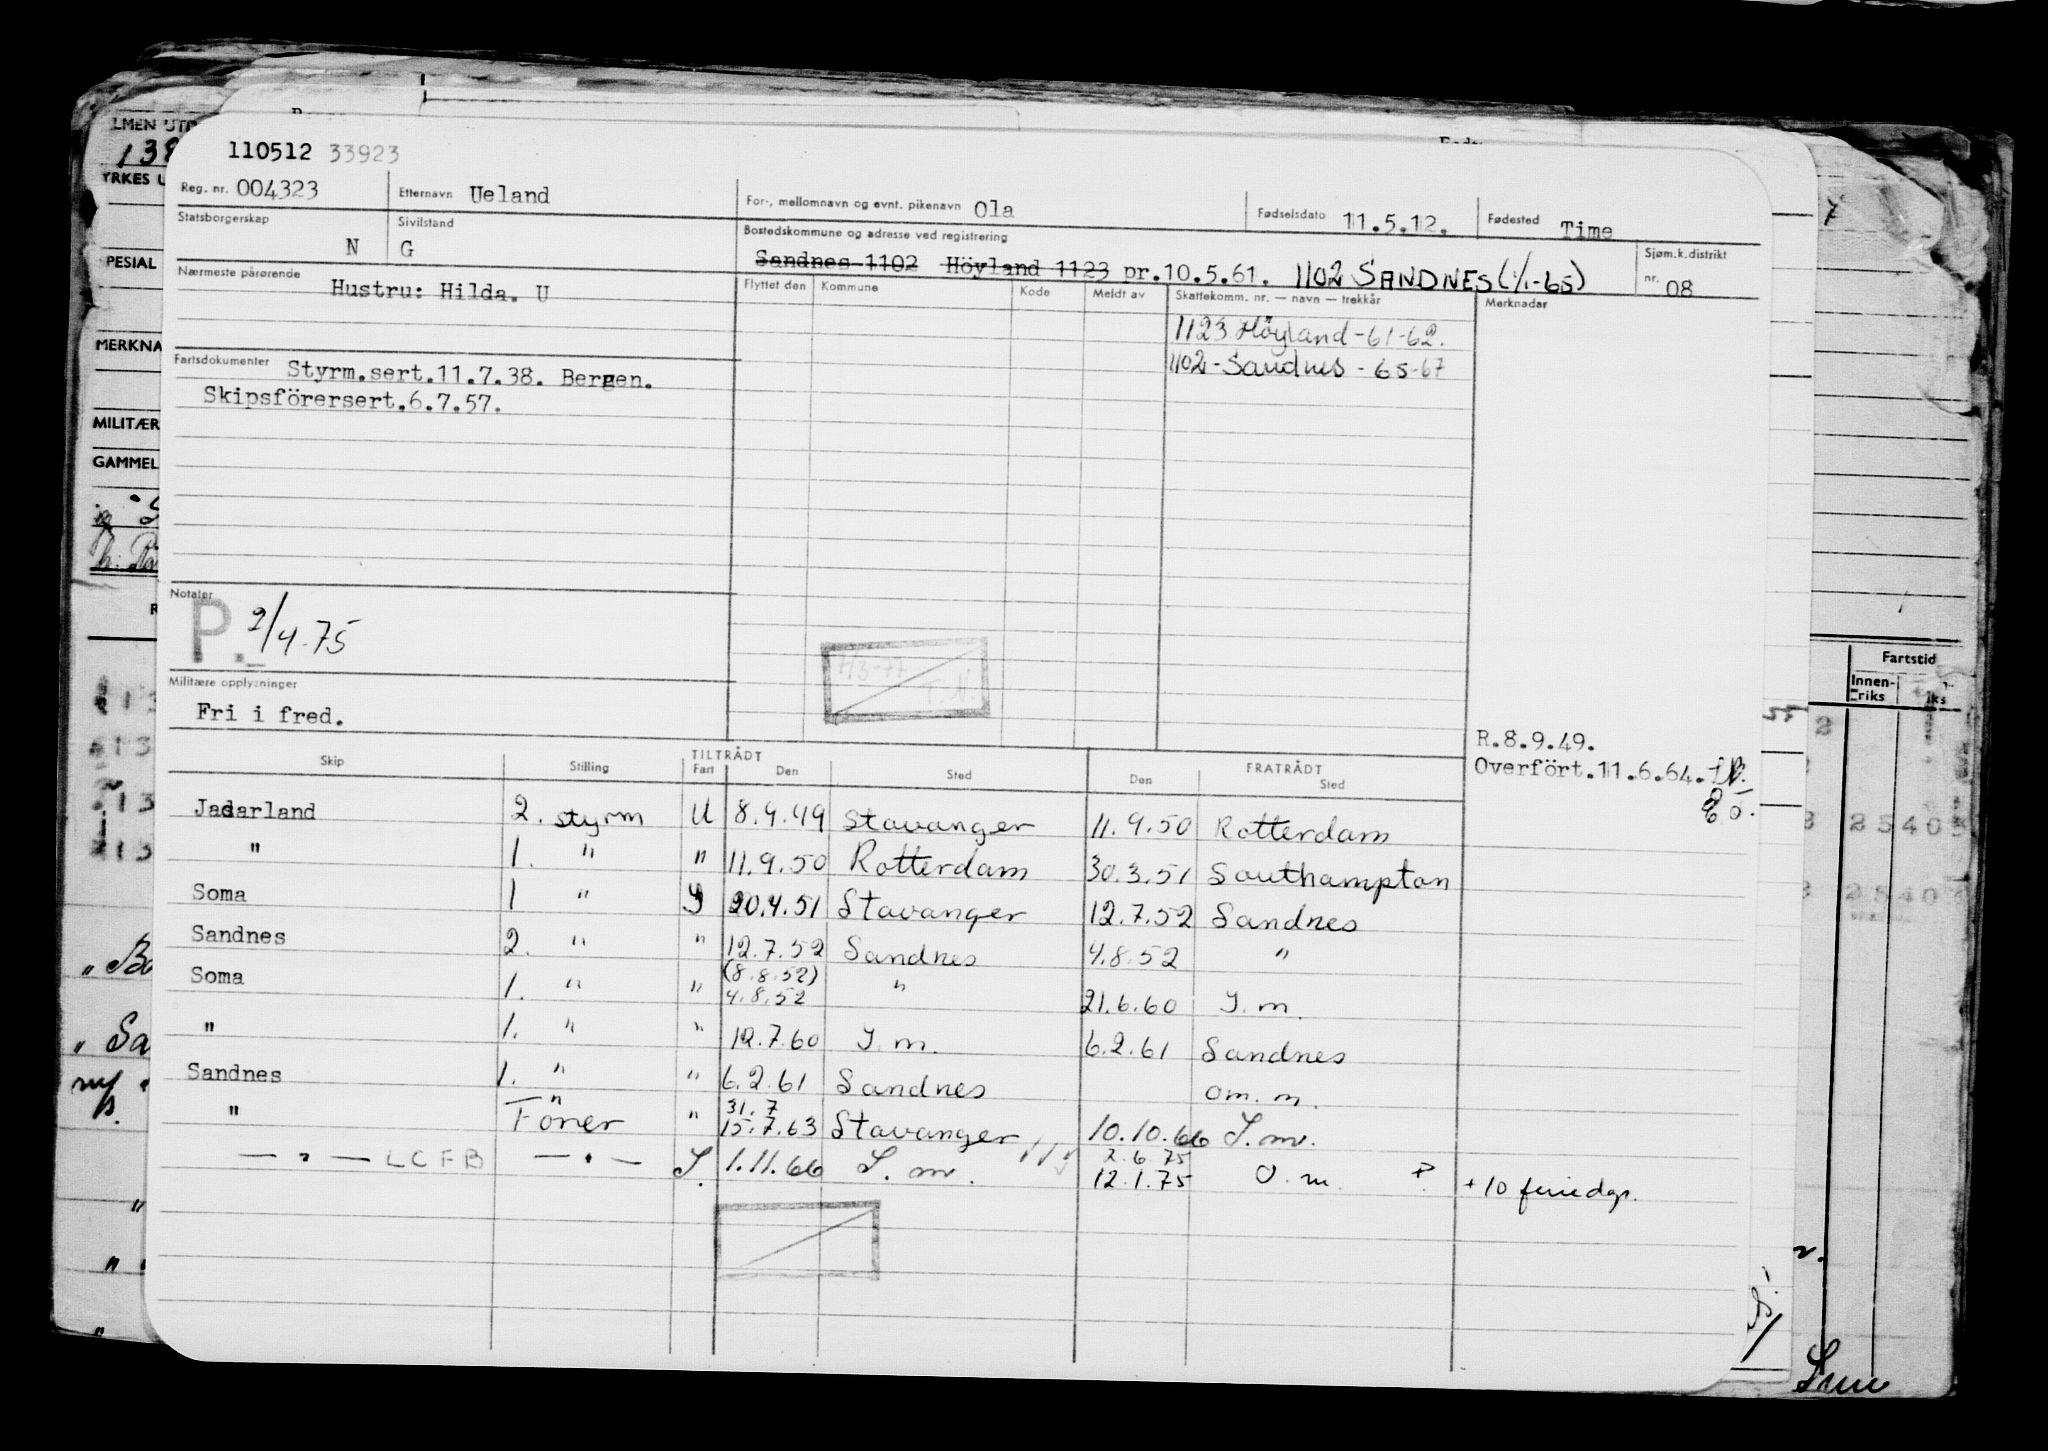 110512 33923
Reg. nr. 004323 Etternavn Ueland For-, mellomnavn og evnt. pikenavn Ola Fødselsdato 11.5.12. Fødested Time
Statsborgerskap N Sivilstand G Bostedskommune og adresse ved registrering Sandnes 1102 Höyland 1123 pr.10.5.61. 1102 SANDNES (1/1-65) Sjøm.k.distrikt nr. 08
Nærmeste pårørende Hustru: Hilda. U
Flyttet den Kommune Kode Meldt av Skattekomm. nr. — navn — trekkår Merknader
1123 Höyland-61-62.
1102-Sandnes - 65-67
Fartsdokumenter Styrm.sert.11.7.38. Bergen.
Skipsförersert.6.7.57.
Notater
P. 2/4-75
T.N.
Militære opplysninger
Fri i fred.
R.8.9.49.
Overfört.11.6.64.
Skip Stilling TILTRÅDT Fart Den Sted FRATRÅDT Den Sted
Jadarland 2. styrm U 8.9.49 Stavanger 11.9.50 Rotterdam
" 1. " " 11.9.50 Rotterdam 30.3.51 Southampton
Soma 1 " 20.4.51 Stavanger 12.7.52 Sandnes
Sandnes 2. " " 12.7.52 Sandnes 4.8.52 "
Soma 1. " " (8.8.52) 4.8.52 " 21.6.60 S.m.
" 1. " " 12.7.60 S.m. 6.2.61 Sandnes
Sandnes 1. " " 6.2.61 Sandnes om. m.
" Förer " 31.7 15.7.63 Stavanger 10.10.66 S.m.
— " — LCFB — " — S. 1.11.66 S.m. 2.6.75 12.1.75 O.m. P + 10 feriedgr.
LMEN UTD
YRKES U
PESIAL
MERKNA
MILITÆR
GAMMEL
Fartstid
Innen-riks